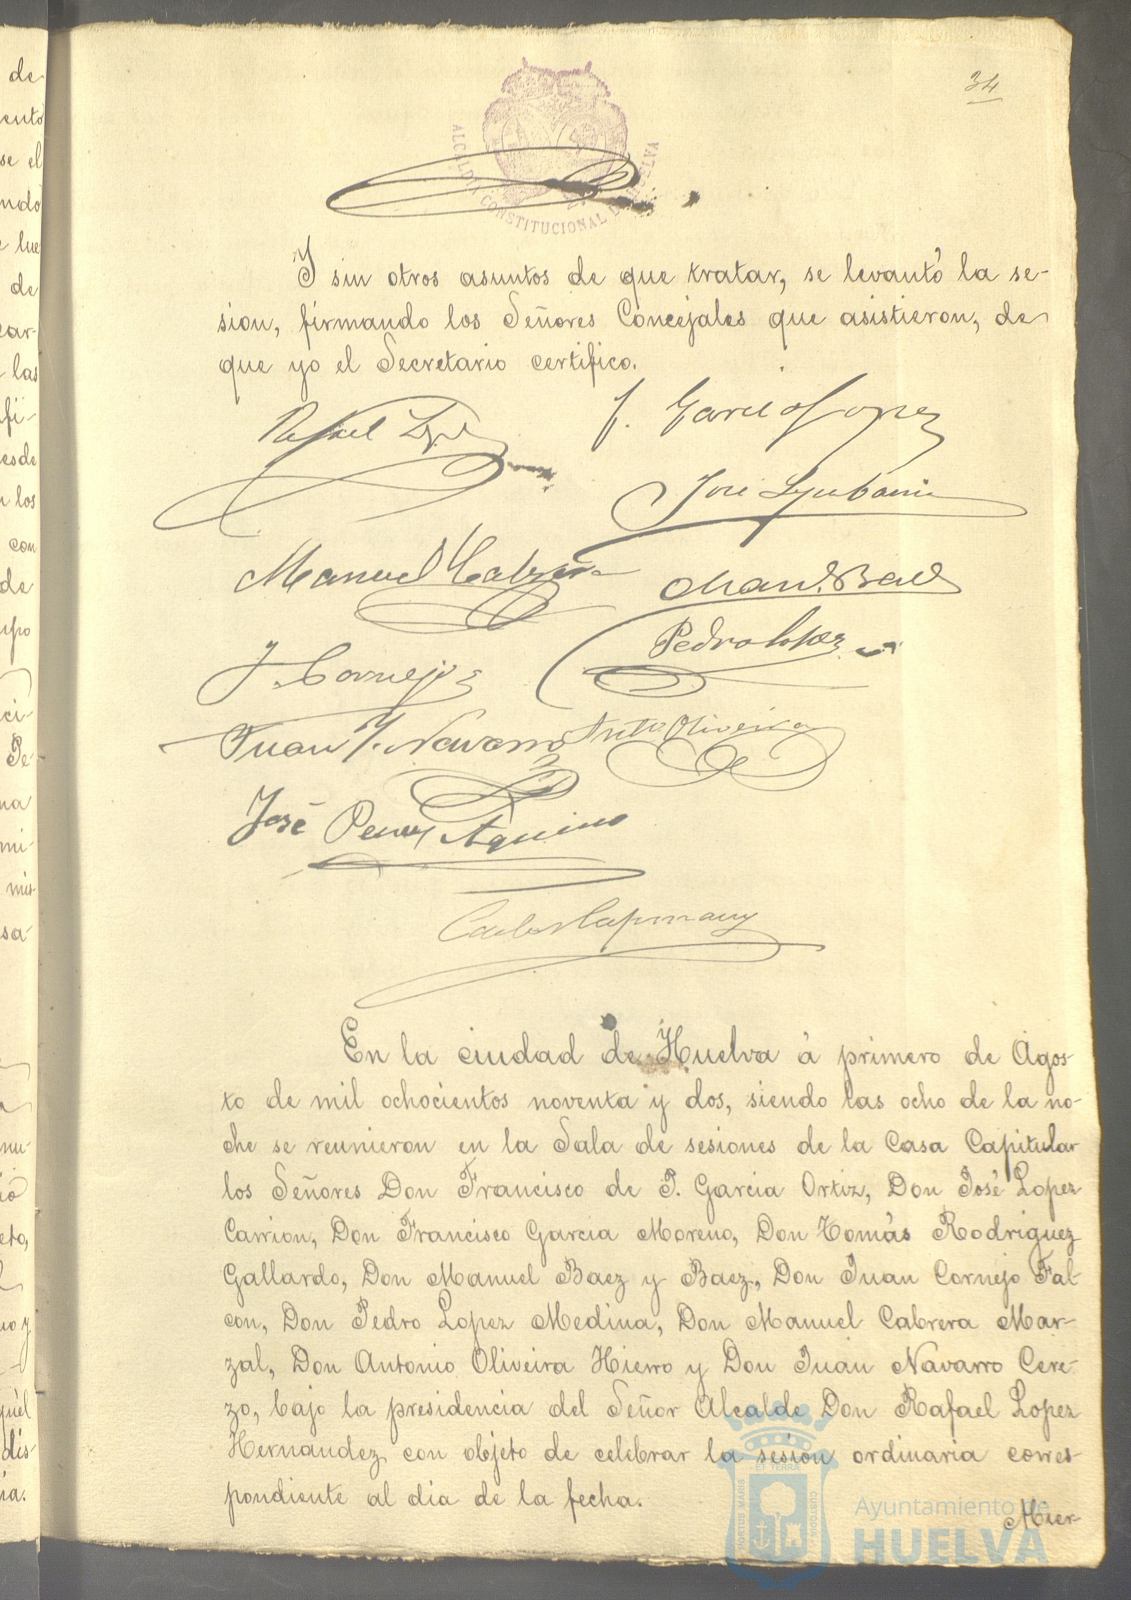 34
ALCALDIA CONSTITUCIONAL DE HUELVA
Y sin otros asuntos de que tratar, se levantó la se-
sion, firmando los Señores Concejales que asistieron, de
que yo el Secretario certifico.
Rafael Lopez
J. Garcia Lopez
José
Manuel Cabrera
Man.l Baez
Pedro Lopez
J. Cornejo
Juan J. Navarro
Ant.o Oliveira
José Perez Aquino
Carlos Capmany
En la ciudad de Huelva á primero de Agos-
to de mil ochocientos noventa y dos, siendo las ocho de la no-
che se reunieron en la Sala de sesiones de la Casa Capitular
los Señores Don Francisco de P. Garcia Ortiz, Don José Lopez
Carrion, Don Francisco Garcia Moreno, Don Tomás Rodriguez
Gallardo, Don Manuel Baez y Baez, Don Juan Cornejo Fal-
con, Don Pedro Lopez Medina, Don Manuel Cabrera Mar-
zal, Don Antonio Oliveira Hierro y Don Juan Navarro Cere-
zo, bajo la presidencia del Señor Alcalde Don Rafael Lopez
Hernandez con objeto de celebrar la sesión ordinaria corres-
pondiente al dia de la fecha.
Mier-
PORTUS MARIS ET TERRA CUSTODIA
Ayuntamiento de
HUELVA